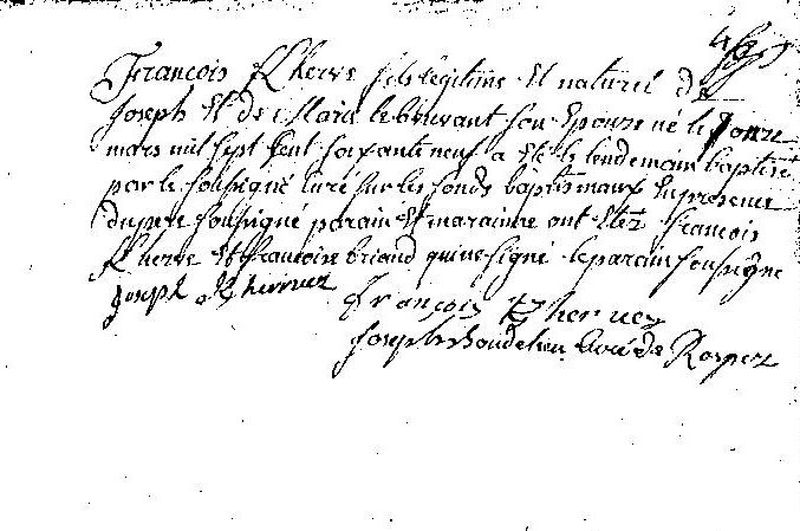 François Kherve fils légitime Et naturel de
Joseph Et de Marie lebouvant son Epouse né le onze
mars mil sept Cent soixante neuf a Eté le lendemain baptisé
par le soussigné curé sur les fonds baptismaux En presence
du pere soussigné parain Et maraine ont Etez François
Kherve Et francoise briand qui ne signe le parain soussigne
Joseph Khervez
François Khervez
Joseph Curé de Rospez